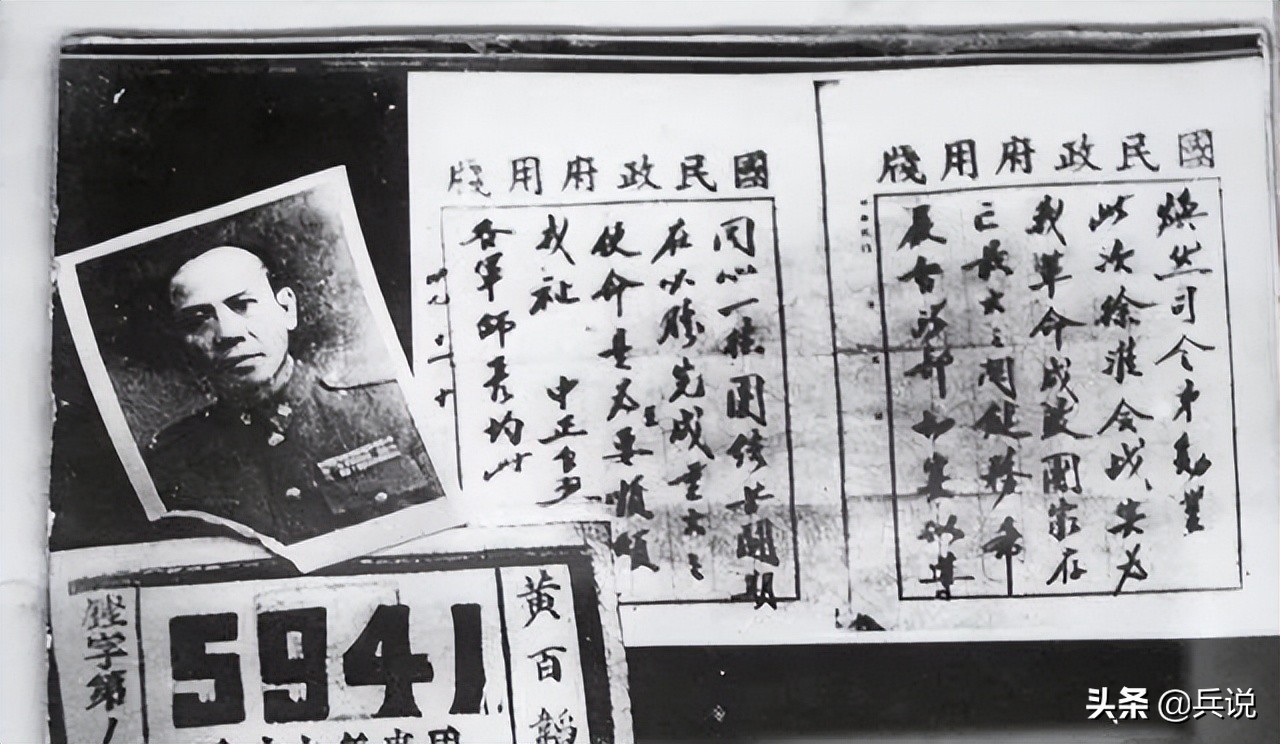 國民政府用牋
煥然司令弟勳鑒
此次徐淮会战实为
我革命成敗國家存
亡最大之関鍵務希
嚴督所部切實
同心一德團結苦鬪期
在必勝完成重大之
使命是為至要順頌
戎祉 中正手啟
各軍師長均此
國民政府用牋
黃百韜
5941
字第
头条 @兵说